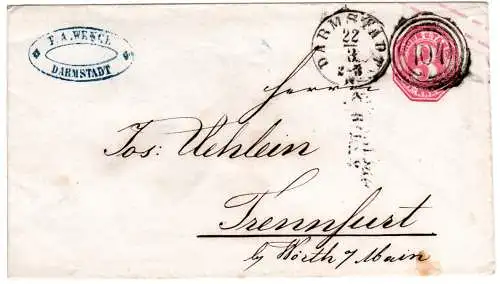 F. A. WENCL
DARMSTADT
DARMSTADT
22
3
Herrn
Jos: Uehlein
Trennfurt
b/ Wörth a/ Main